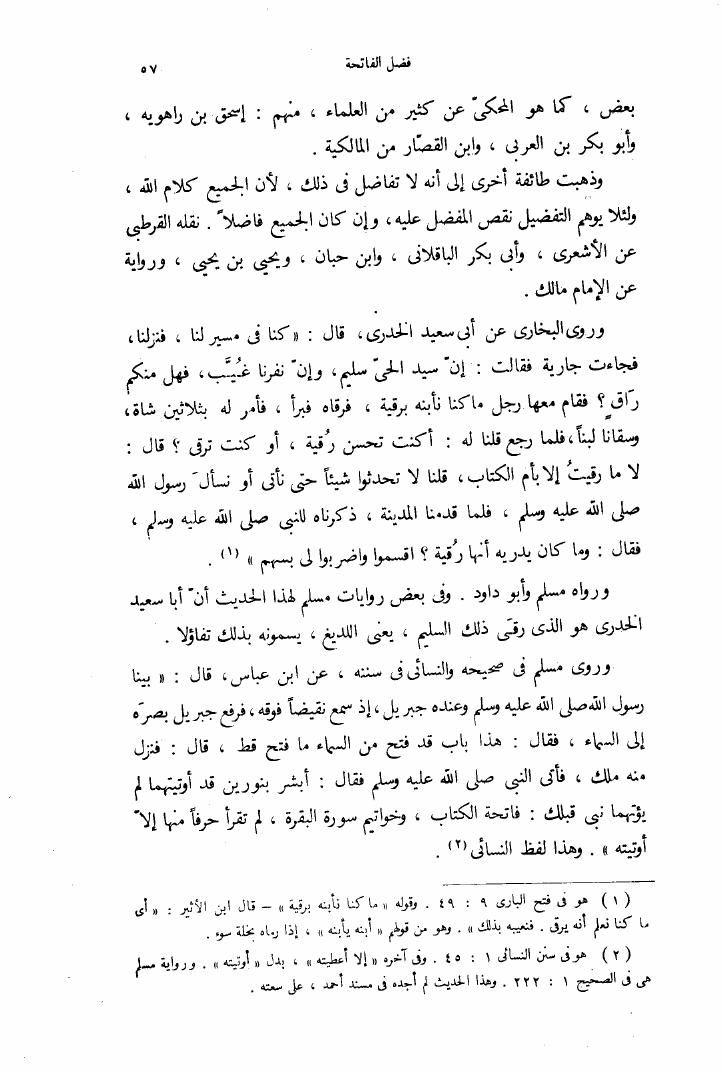 فضل الفاتحة
٥٧
بعض ، كما هو المحكىّ عن كثير من العلماء ، منهم : إسحق بن راهويه ،
وأبو بكر بن العربى ، وابن القصّار من المالكية .
وذهبت طائفة أخرى إلى أنه لا تفاضل فى ذلك ، لأن الجميع كلام الله ،
ولئلا يوهم التفضيل نقص المفضل عليه، وإن كان الجميع فاضلاً . نقله القرطبى
عن الأشعرى ، وأبى بكر الباقلانى ، وابن حبان ، ويحيى بن يحيى ، ورواية
عن الإمام مالك .
وروى البخارى عن أبى سعيد الخدرى، قال : «كنا فى مسير لنا ، فنزلنا،
فجاءت جارية فقالت : إنّ سيد الحىّ سليم، وإنّ نفرنا غُيَّب، فهل منكم
رَاقٍ؟ فقام معها رجل ما كنا نأبنه برقية ، فرقاه فبرأ ، فأمر له بثلاثين شاة،
وسقانا لبناً، فلما رجع قلنا له : أكنت تحسن رُقية ، أو كنت ترقى ؟ قال :
لا ما رقيتُ إلا بأم الكتاب، قلنا لا تحدثوا شيئاً حتى نأتى أو نسألَ رسول الله
صلى الله عليه وسلم ، فلما قدمنا المدينة ، ذكرناه للنبى صلى الله عليه وسلم ،
فقال : وما كان يدريه أنها رُقية ؟ اقسموا واضربوا لى بسهم » (١) .
ورواه مسلم وأبو داود . وفى بعض روايات مسلم لهذا الحديث أنّ أبا سعيد
الخدرى هو الذى رقَى ذلك السليم ، يعنى اللديغ ، يسمونه بذلك تفاؤلا .
وروى مسلم فى صحيحه والنسائى فى سننه ، عن ابن عباس، قال : « بينا
رسول الله صلى الله عليه وسلم وعنده جبريل، إذ سمع نقيضاً فوقه، فرفع جبريل بصرَه
إلى السماء ، فقال : هذا باب قد فتح من السماء ما فتح قط ، قال : فنزل
منه ملك ، فأتى النبى صلى الله عليه وسلم فقال : أبشر بنورين قد أوتيتهما لم
يؤتهما نبى قبلك : فاتحة الكتاب ، وخواتيم سورة البقرة ، لم تقرأ حرفاً منها إلاّ
أوتيته » . وهذا لفظ النسائى (٢) .
(١) هو فى فتح البارى ٩ : ٤٩ . وقوله «ما كنا نأبنه برقية» – قال ابن الأثير : «أى
ما كنا نعلم أنه يرقى . فنعيبه بذلك» . وهو من قولهم «أبنه يأبنه» ، إذا رماه بخلة سوء .
(٢) هو فى سنن النسائى ١ : ٤٥ . وفى آخره «إلا أعطيته» ، بدل «أوتيته» . ورواية مسلم
هى فى الصحيح ١ : ٢٢٢ . وهذا الحديث لم أجده فى مسند أحمد ، على سعته .